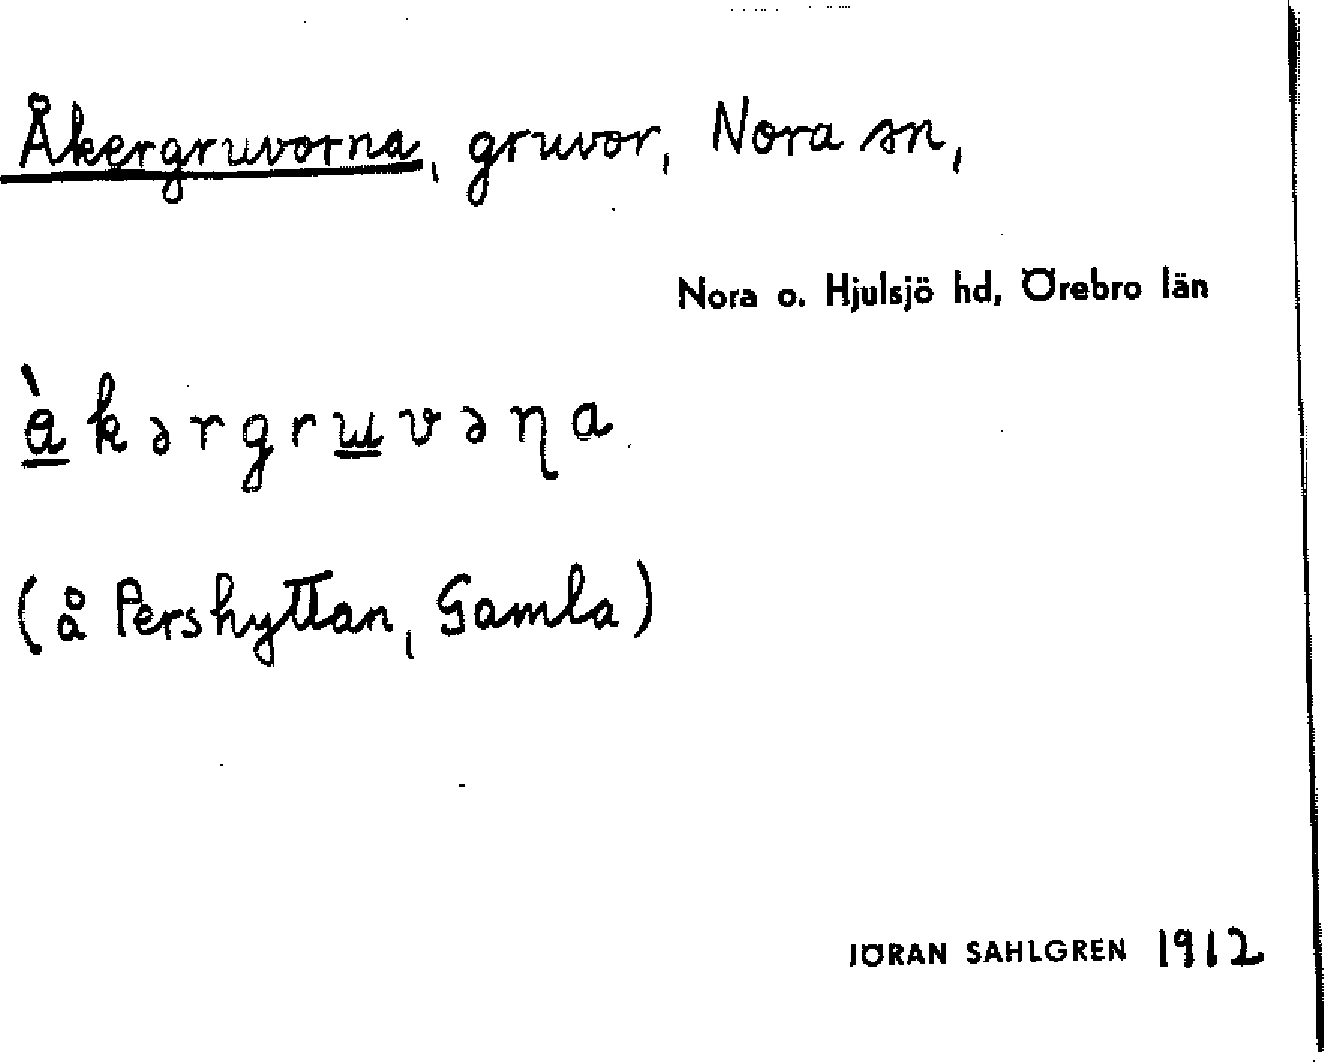 Åkergruvorna, gruvor, Nora sn,
Nora o. Hjulsjö hd, Örebro län
àkərgruvəɳa
(å Pershyttan, Gamla)
JÖRAN SAHLGREN 1912